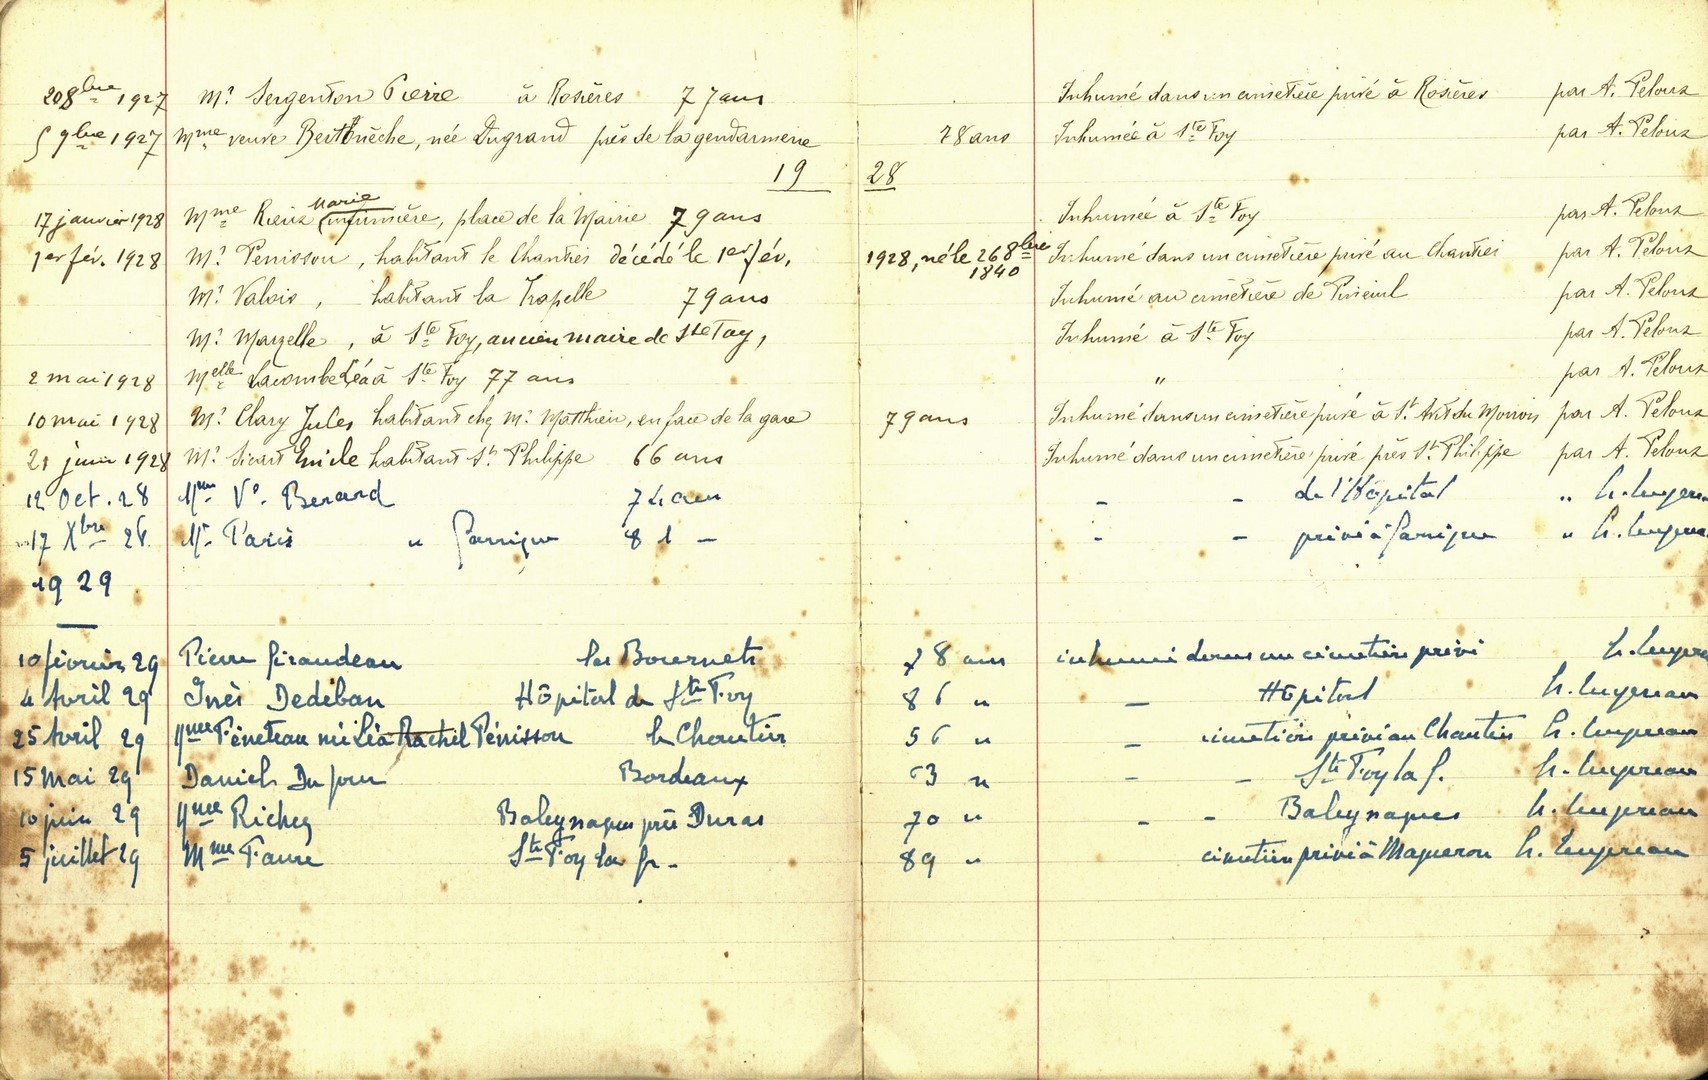 20 8bre 1927 Mr Sergenton Pierre à Rosières 77 ans Inhumé dans un cimetière privé à Rosières par A. Peloux
5 9bre 1927 Mme veuve Berthnèche, née Dugrand près de la gendarmerie 78 ans Inhumée à Ste Foy par A. Peloux
1928
17 janvier 1928 Mme Rieux Marie infirmière, place de la Mairie 79 ans Inhumée à Ste Foy par A. Peloux
1er fév. 1928 Mr Penisson, habitant le Chantier décédé le 1er fév. 1928, né le 26 8bre 1840 Inhumé dans un cimetière privé au Chantier par A. Peloux
Mr Valois, habitant la Trapelle 79 ans Inhumé au cimetière de par A. Peloux
Mr Marzelle, à Ste Foy, ancien maire de Ste Foy, Inhumé à Ste Foy par A. Peloux
2 mai 1928 Melle Lacombe Léa à Ste Foy 77 ans " par A. Peloux
10 mai 1928 Mr Clary Jules habitant chez Mr Matthieu, en face de la gare 79 ans Inhumé dans un cimetière privé à St Avit du Moiron par A. Peloux
21 juin 1928 Mr Sicart Emile habitant St Philippe 66 ans Inhumé dans un cimetière privé près St Philippe par A. Peloux
12 Oct. 28 Mme Ve. Berard 74 ans - - de l'Hôpital " h.
17 Xbre 28. Mr Paris " Garrigue 81 - - - privé à Garrigue " h.
1929
10 février 29 Pierre Giraudeau les Bournets 78 ans inhumé dans un cimetière privé h.
4 Avril 29 Inès Dedeban Hôpital de Ste Foy 86 " - Hôpital h.
25 Avril 29 Mme Féneteau née Léa Rachel Pénisson le Chantier 56 " - cimetière privé au Chantier h.
15 Mai 29 Daniel Dupuy Bordeaux 63 " - - Ste Foy la G. h.
10 juin 29 Mme Richez Baleynagues près Duras 70 " - - Baleynagues h.
5 juillet 29 Mme Faure Ste Foy la Gr- 89 " cimetière privé à Magueron h.